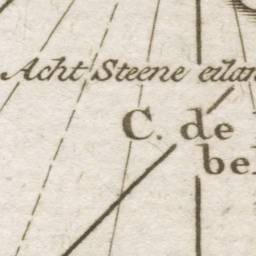 Acht Steene eilan
C. de
be